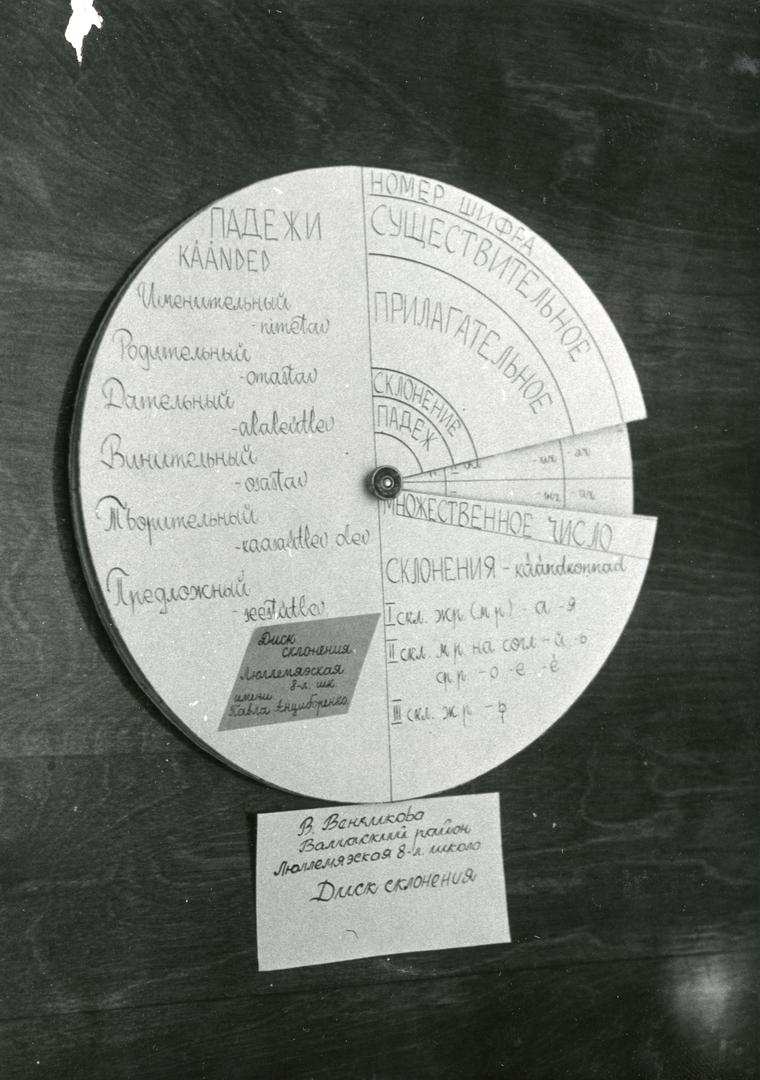 ПАДЕЖИ
KÄÄNDED
Именительный
-nimetav
Родительный
-omastav
Дательный
-alaleütlev
Винительный
-osastav
Творительный
-kaasaütlev olev
Предложный
-seestütlev
Диск
склонения
Люллемяэская
8-л. шк.
имени
Павла Анциборенко
НОМЕР ШИФРА
СУЩЕСТВИТЕЛЬНОЕ
ПРИЛАГАТЕЛЬНОЕ
СКЛОНЕНИЕ
ПАДЕЖ
-ых -ах
-ах
МНОЖЕСТВЕННОЕ ЧИСЛО
СКЛОНЕНИЯ - käändkonnad
I скл. ж р (м р) - а - я
II скл. м р на согл - й - ь
ср р. - о - е - ё
III скл. ж р - ь
В. Венчикова
Валгаский район
Люллемяэская 8-л. школа
Диск склонения